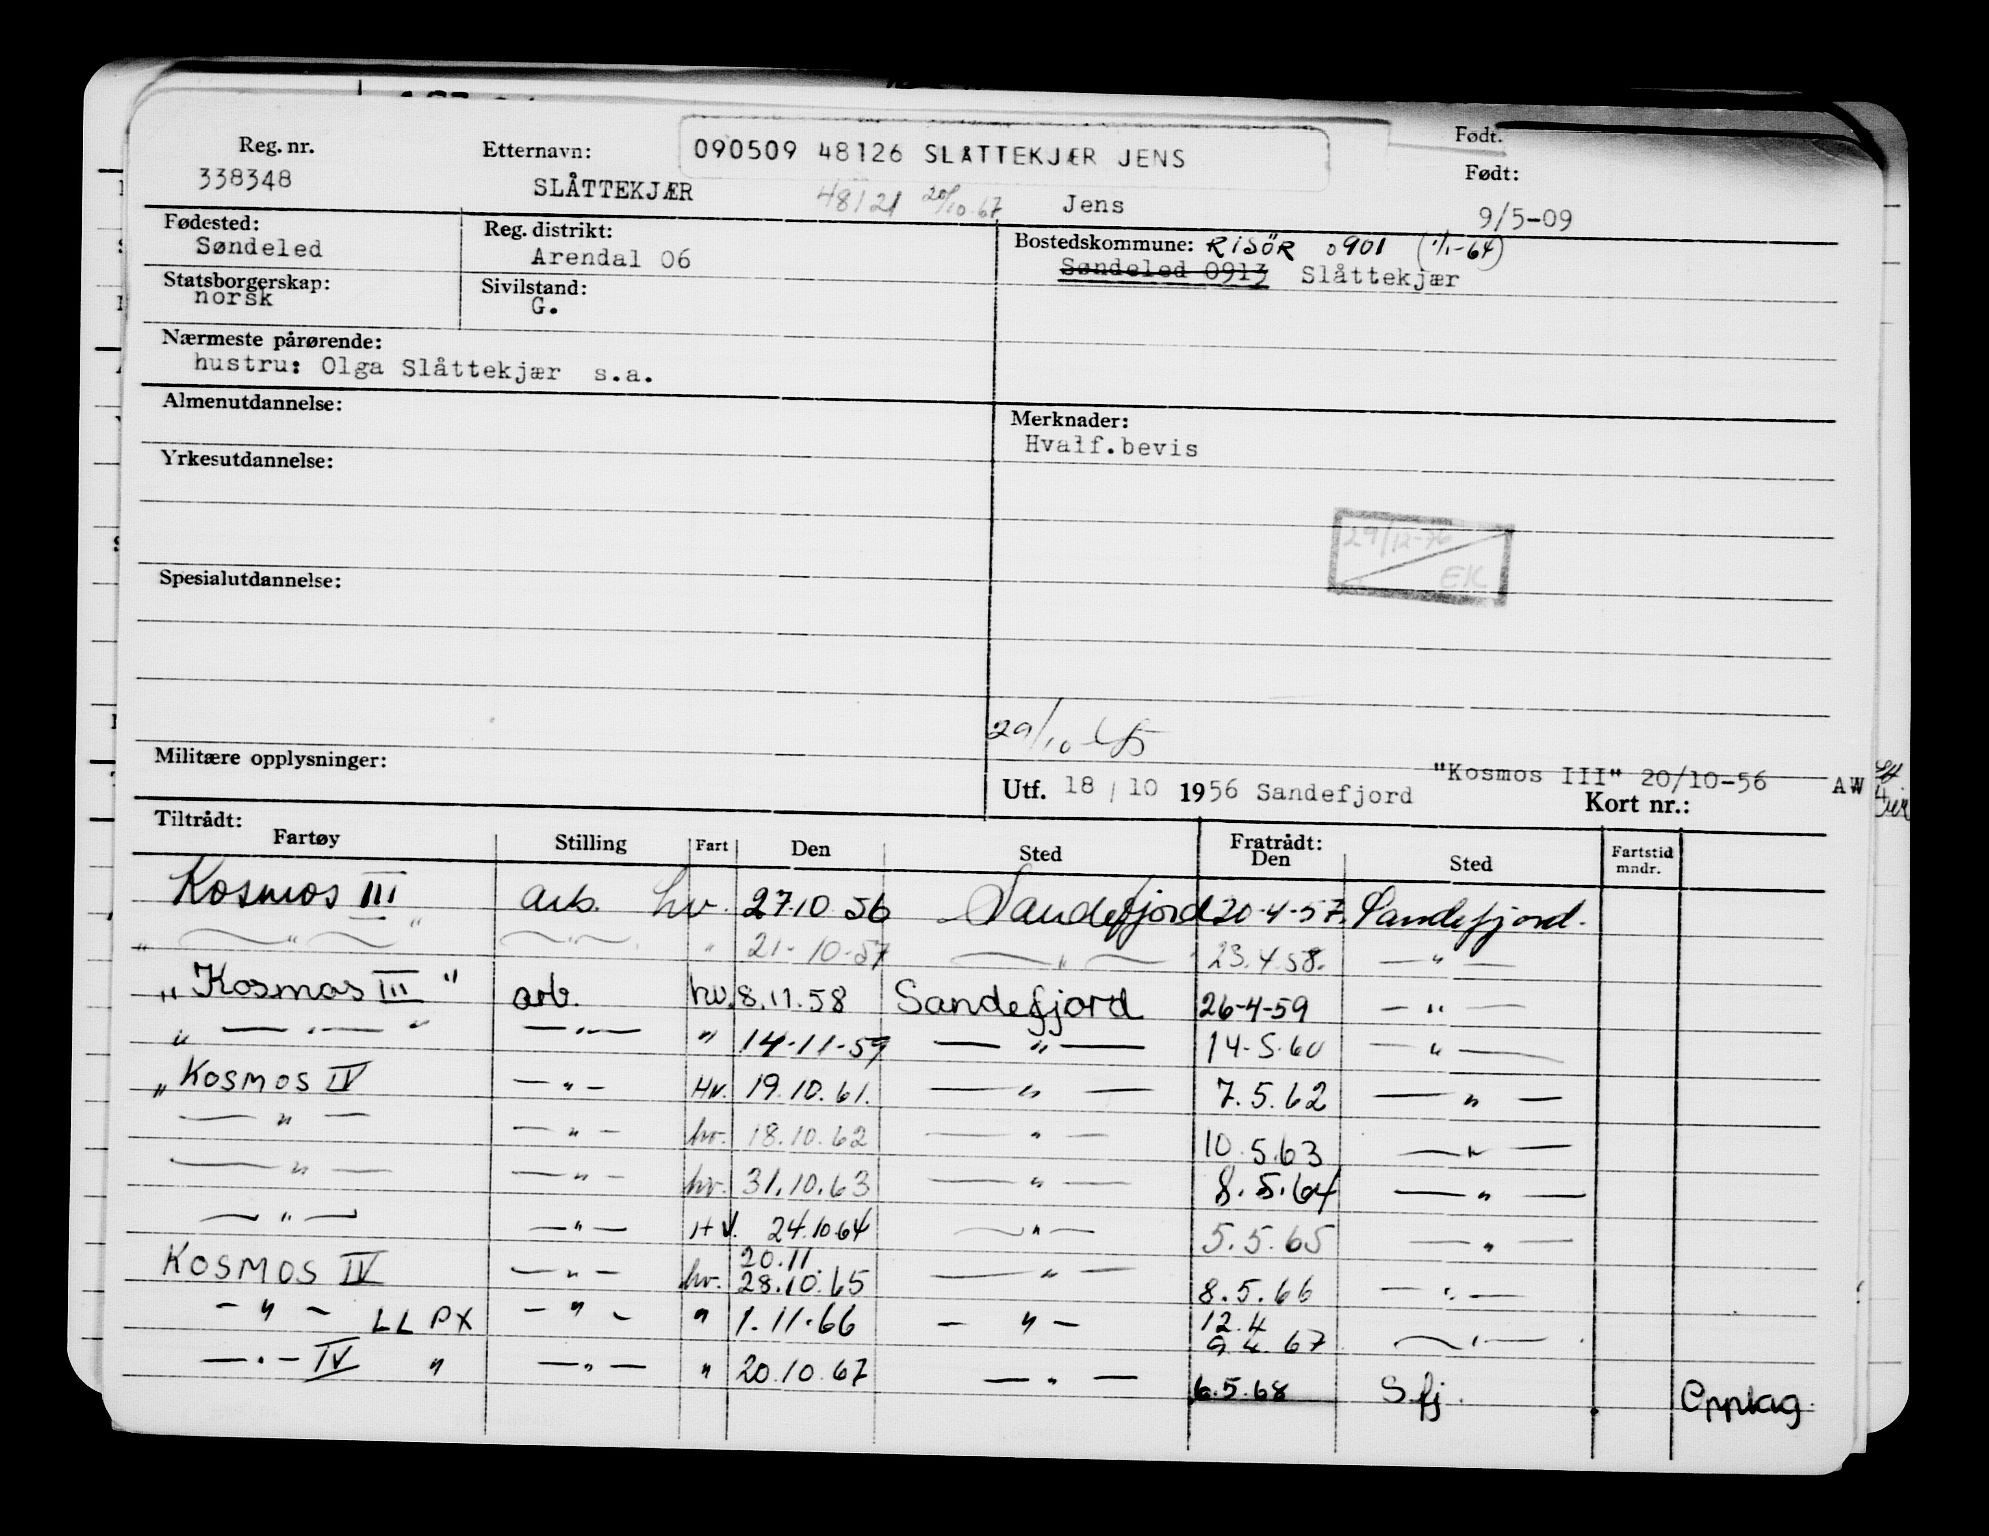 Født.
Reg. nr. Etternavn: 090509 48126 SLÅTTEKJÆR JENS Født:
338348 SLÅTTEKJÆR 48121 20/10-67 Jens 9/5-09
Fødested: Reg. distrikt: Bostedskommune: RISÖR 0901 (1/1-64)
Søndeled Arendal 06 Søndeled 0913 Slåttekjær
Statsborgerskap: Sivilstand:
norsk G.
Nærmeste pårørende:
hustru: Olga Slåttekjær s.a.
Almenutdannelse: Merknader:
Hvalf.bevis
Yrkesutdannelse:
29/12-76
EK
Spesialutdannelse:
29/10
Militære opplysninger: "Kosmos III" 20/10-56 AW
Utf. 18 / 10 1956 Sandefjord Kort nr.:
Tiltrådt: Fratrådt:
Fartøy Stilling Fart Den Sted Den Sted Fartstid mndr.
Kosmos III arb. hv. 27.10 56 Sandefjord 20-4-57. Sandefjord.
„ — " — " — " — " 21-10-57 — " — 23.4.58. — " —
„Kosmos III" arb. hv. 8.11.58 Sandefjord 26-4-59 — " —
„ — " — " — " — " 14-11-59 — " — 14-5.60 — " —
„Kosmos IV — " — Hv. 19.10.61. — " — 7.5.62 — " —
— " — — " — hv. 18.10.62 — " — 10.5.63 — " —
— " — — " — hv. 31.10.63 — " — 8.5.64 — " —
— " — — " — HV. 24.10.64 — " — 5.5.65 — " —
20.11
KOSMOS IV — " — hv. 28.10.65 — " — 8.5.66 — " —
12.4
— " — LLPX — " — " 1.11.66 — " — 9.4.67 — " —
— " — IV " — " — " 20.10.67 — " — 6.5.68 S.fj. Opplag.